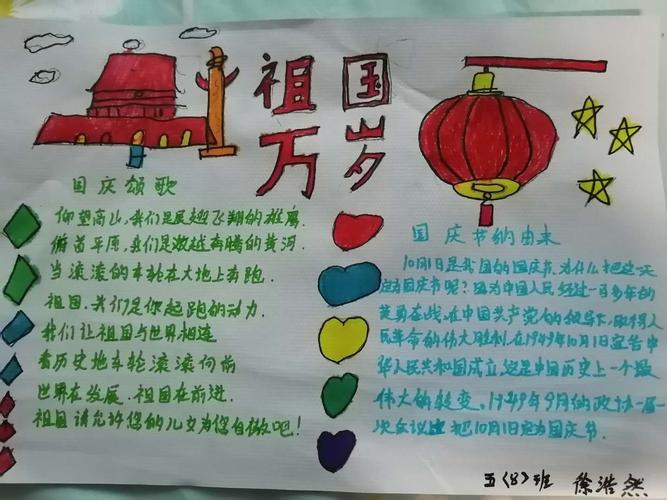 祖国
万岁
国庆颂歌
仰望高山,我们是展翅飞翔的雄鹰.
俯首平原,我们是激越奔腾的黄河.
当滚滚的车轮在大地上奔跑.
祖国.我们是你起跑的动力.
我们让祖国与世界相连
看历史地车轮滚滚向前
世界在发展.祖国在前进.
祖国请允许您的儿女为您自傲吧!
国庆节的由来
10月1日是我国的国庆节.为什么把这一
天定为国庆节呢?因为中国人民经过一百多年的
英勇奋战,在中国共产党的领导下,取得人
民革命的伟大胜利.在1949年10月1日宣告中
华人民共和国成立.这是中国历史上一个最
伟大的转变.1949年9月的政协一届一
次会议上把10月1日定为国庆节.
五〈8〉班 徐浩然